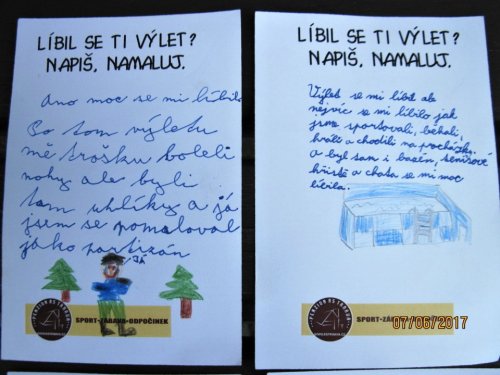 LÍBIL SE TI VÝLET?
NAPIŠ, NAMALUJ.
Ano moc se mi líbilo
Po tom výletu
mě trošku boleli
nohy ale byli
tam uhlíky a já
jsem se pomaloval
jako partizán
JÁ
SPORT-ZÁBAVA-ODPOČINEK
LÍBIL SE TI VÝLET?
NAPIŠ, NAMALUJ.
Výlet se mi líbil ale
nejvíc se mi líbilo jak
jsme sportovali, běhali,
hráli a chodili na procházky
a byl sam i bazén, tenisové
hřiště a chata se mi moc
líbila.
SPORT-ZÁ
07/06/2017